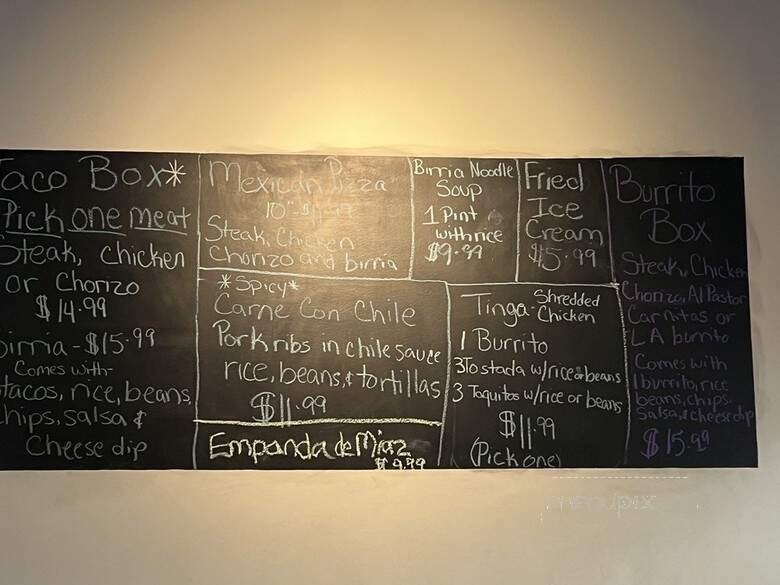 Taco Box*
Pick one meat
Steak, chicken
or Chorizo
$14.99
Birria - $15.99
Comes with-
tacos, rice, beans,
chips, salsa &
Cheese dip
Mexican Pizza
10"
Steak, Chicken
Chorizo and birria
*Spicy*
Carne Con Chile
Pork ribs in chile sauce
rice, beans, & tortillas
$11.99
Empanda de Miaz
$9.99
Birria Noodle
Soup
1 Pint
with rice
$9.99
Fried
Ice
Cream
$5.99
Tinga- Shredded
Chicken
1 Burrito
3 Tostada w/rice or beans
3 Taquitos w/rice or beans
$11.99
(Pick one)
Burrito
Box
Steak, Chicken
Chorizo, Al Pastor
Carnitas or
LA burrito
Comes with
1 burrito, rice
beans, chips
Salsa, & cheese dip
$15.99